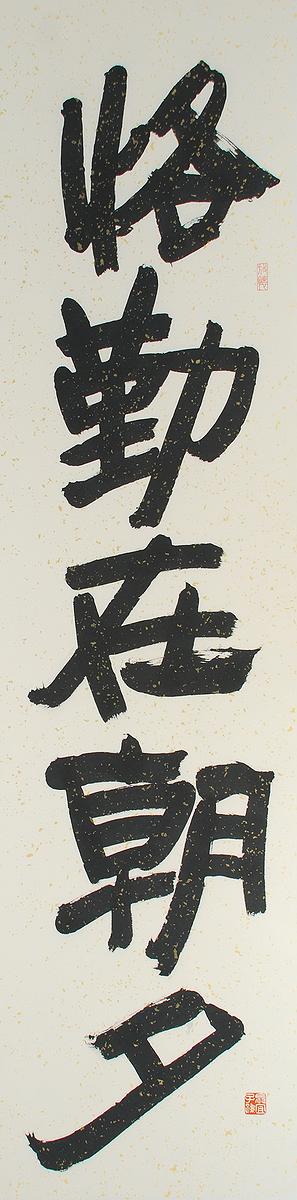 恪勤在朝夕